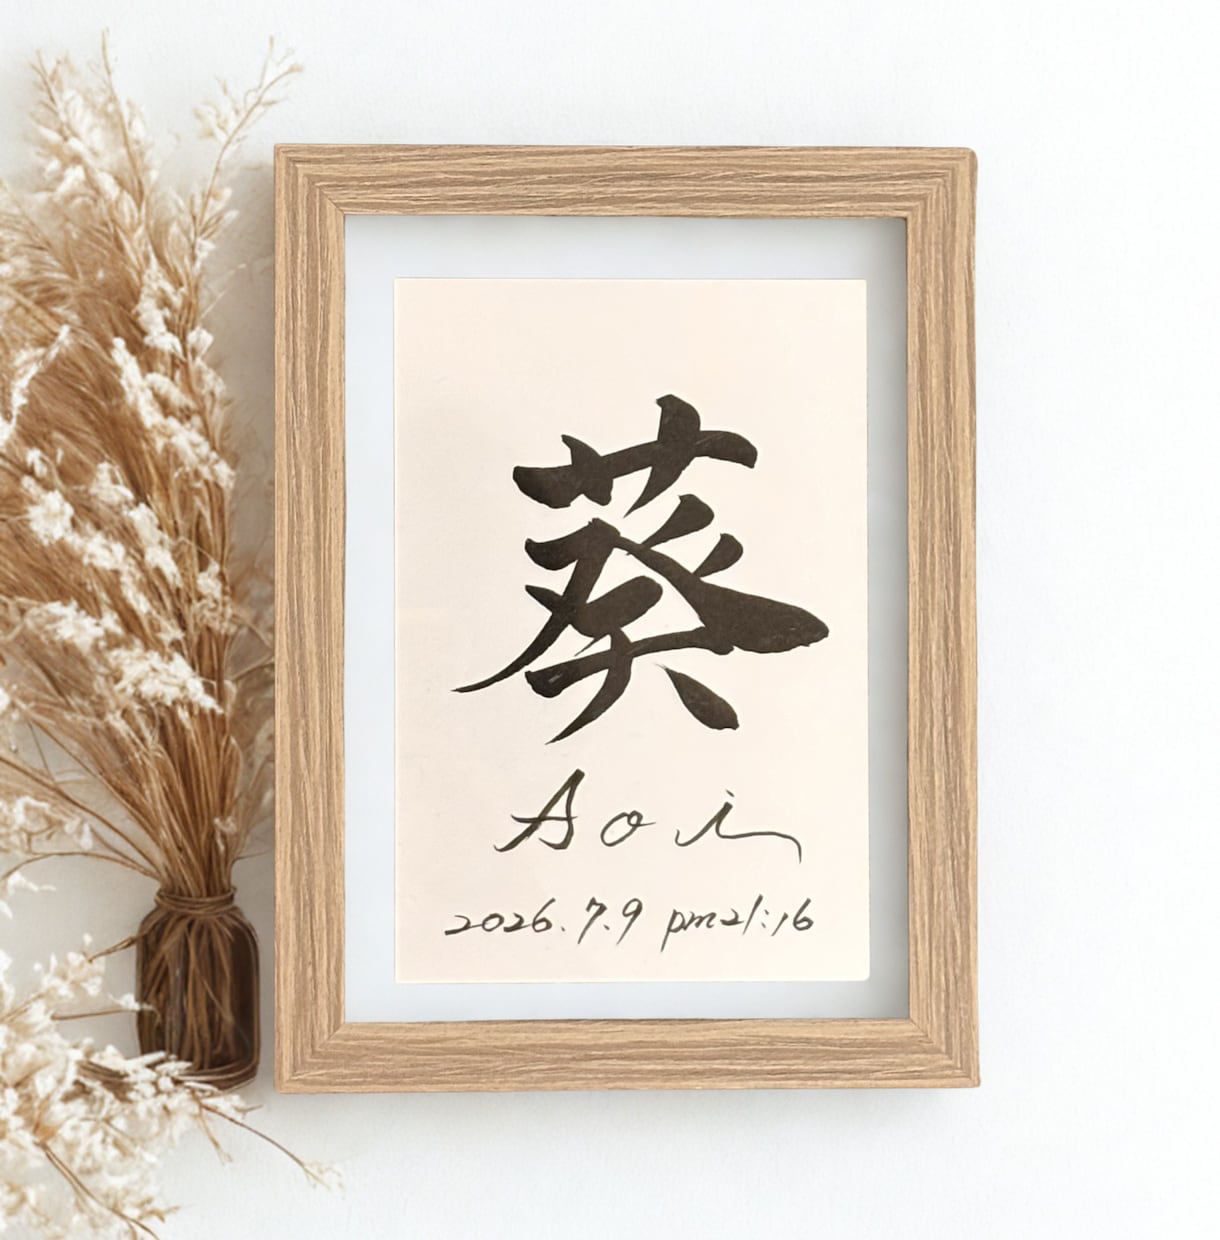 葵
Aoi
2026.7.9 pm21:16